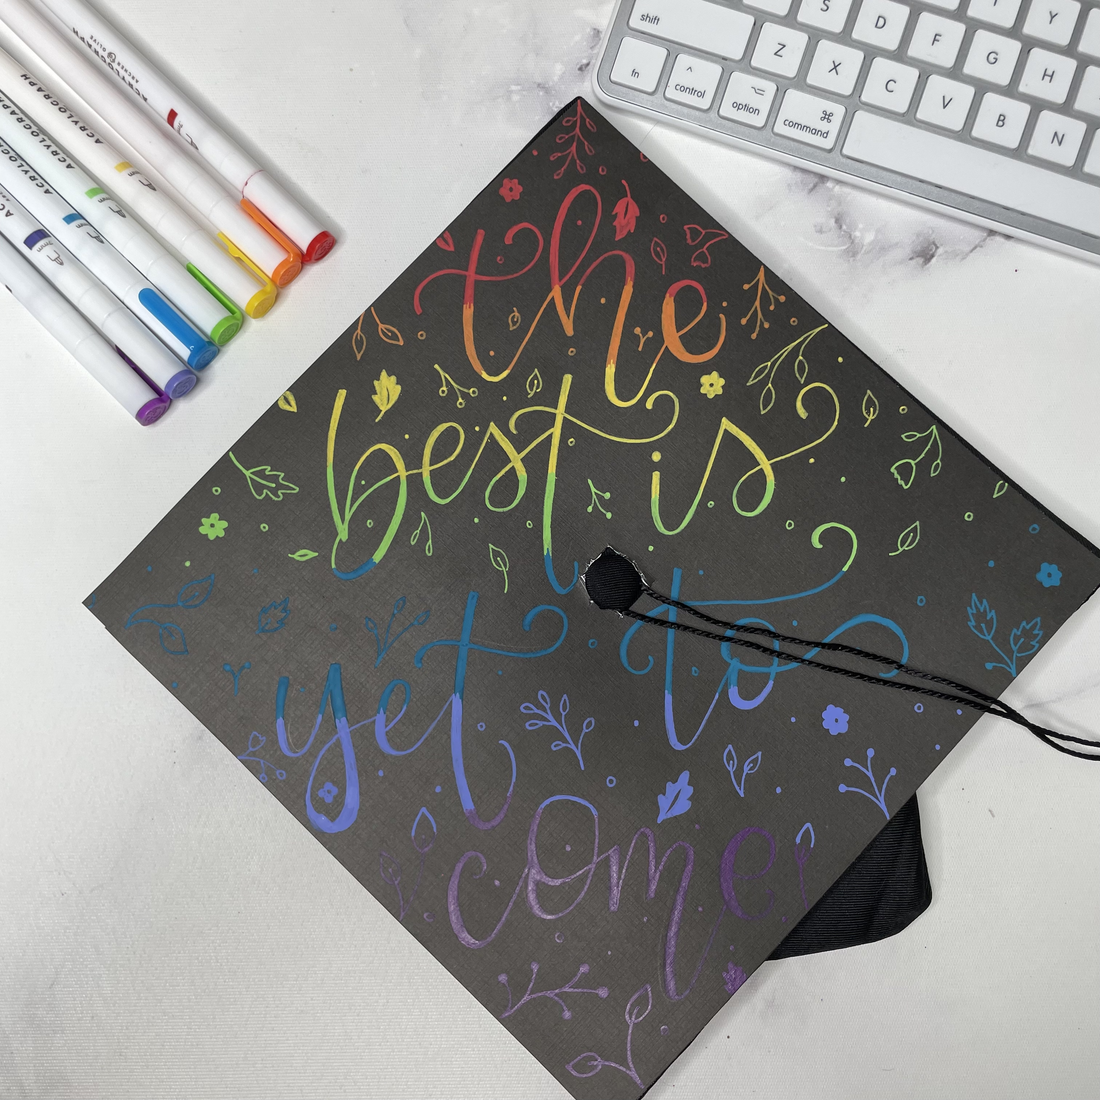 the
best is
yet to
come
ACRYLOGRAPH
ARCHER & OLIVE
ACRYLOGRAPH
ACRYLOGRAPH
shift
S
D
F
G
H
Y
Z
X
C
V
B
N
fn
control
option
command